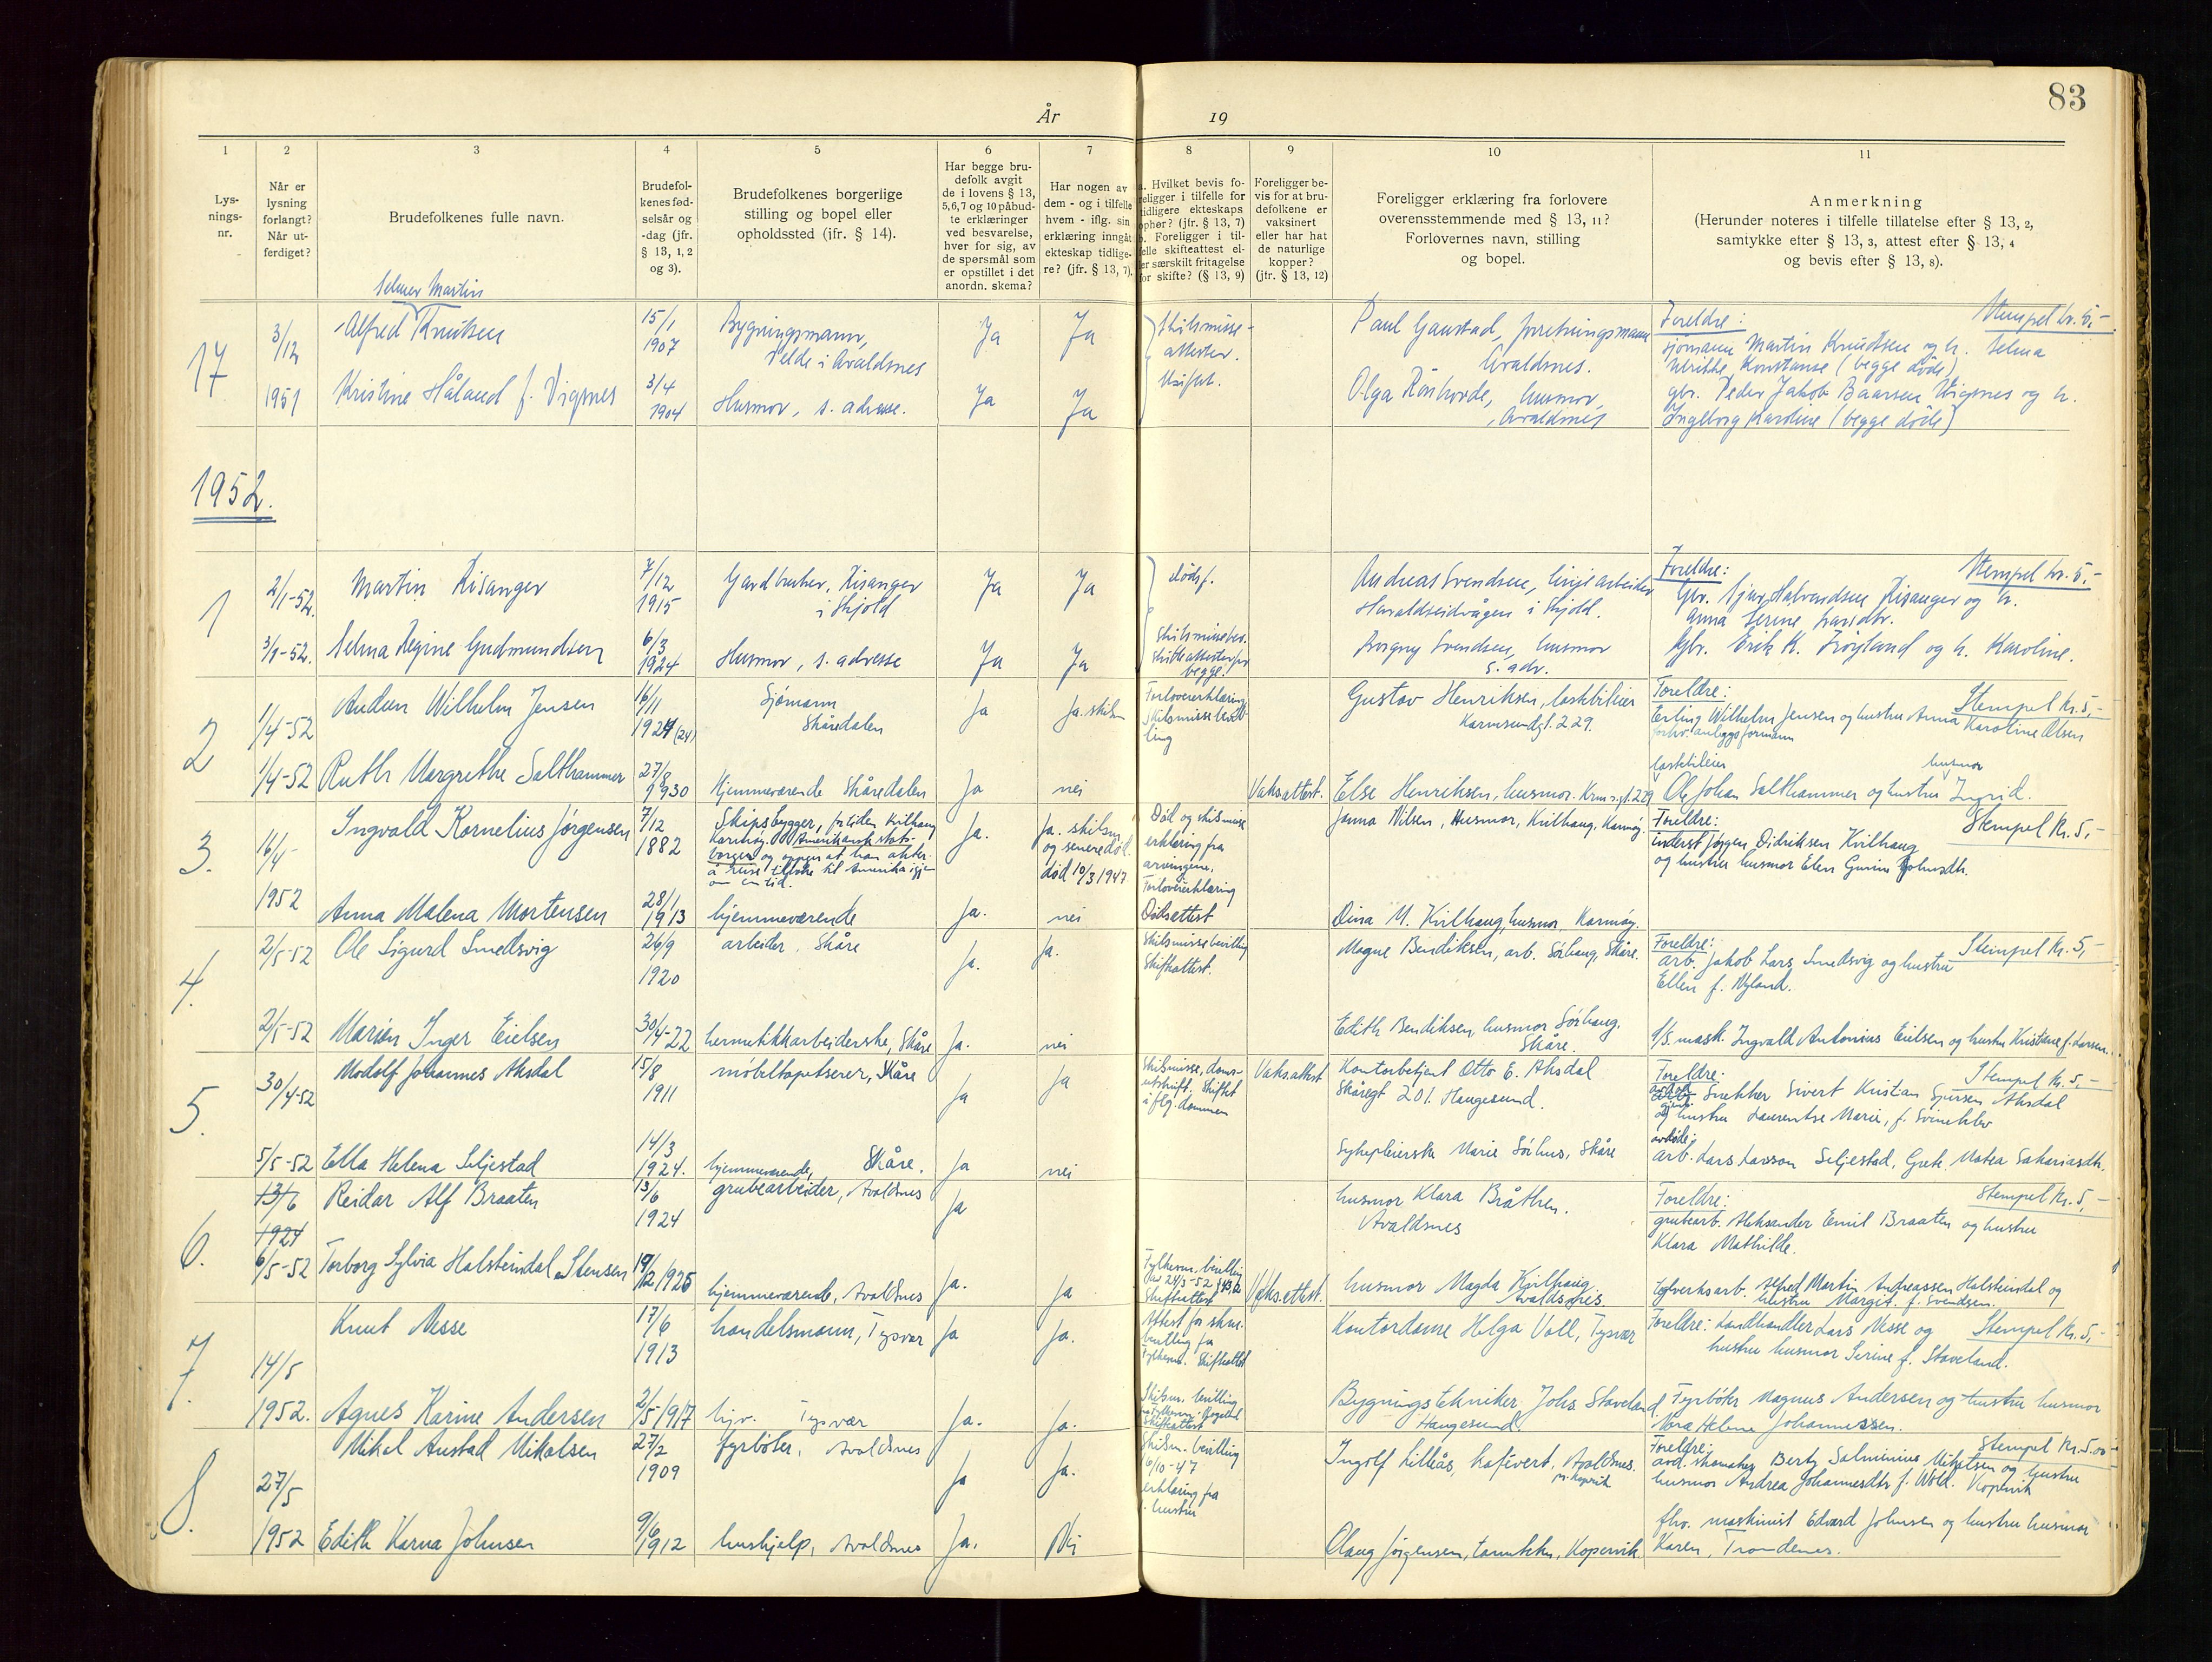 83
År 19
1 2 3 4 5 6 7 8 9 10 11
Lys-
nings-
nr.
Når er
lysning
forlangt?
Når ut-
ferdiget?
Brudefolkenes fulle navn.
Brudefol-
kenes fød-
selsår og
-dag (jfr.
§ 13, 1, 2
og 3).
Brudefolkenes borgerlige
stilling og bopel eller
opholdssted (jfr. § 14).
Har begge bru-
defolk avgit
de i lovens § 13,
5,6,7 og 10 påbud-
te erklæringer
ved besvarelse,
hver for sig, av
de spørsmål som
er opstillet i det
anordn. skema?
Har nogen av
dem - og i tilfelle
hvem - iflg. sin
erklæring inngåt
ekteskap tidlige-
re? (jfr. § 13, 7).
a. Hvilket bevis fo-
religger i tilfelle for
tidligere ekteskaps
ophør? (jfr. § 13, 7)
b. Foreligger i til-
felle skifteattest el-
ler særskilt fritagelse
for skifte? (§ 13, 9)
Foreligger be-
vis for at bru-
defolkene er
vaksinert
eller har hat
de naturlige
kopper?
(jfr. § 13, 12)
Foreligger erklæring fra forlovere
overensstemmende med § 13, 11?
Forlovernes navn, stilling
og bopel.
Anmerkning
(Herunder noteres i tilfelle tillatelse efter § 13, 2,
samtykke efter § 13, 3, attest efter § 13, 4
og bevis efter § 13, 8).
17
3/12
1951
Selmer Martin
Alfred Knutsen
15/1
1907
Bygningsmann,
Velde i Avaldsnes
Ja
Ja
Skilsmisse-
attester.
Skiftet.
Paul Gaustad, forretningsmann
Avaldsnes.
Foreldre:
Stempel kr. 5,-
sjømann Martin Knudtsen og h. Selma
Ulrikke Konstanse (begge døde)
Kristine Håland f. Vigsnes
3/4
1904
Husmor, s. adresse.
Ja
Ja
Olga Røksvorde, husmor,
Avaldsnes
gbr. Peder Jakob Baarsen Vigsnes og h.
Ingeborg Karoline (begge døde)
1952.
1
2/1-52.
Martin Risanger
7/12
1915
Gardbruker, Risanger
i Skjold
Ja
Ja
dødsf.
Andreas Svendsen, linjearbeider
Haraldseidvågen i Skjold.
Foreldre:
Stempel kr. 5,-
Gbr. Sjur Halvardsen Risanger og h.
Anna Serine
3/1-52.
Selma Regine Gudmundsen
6/3
1924
Husmor, s. adresse
Ja
Ja
Skilsmissebev.
Skifteattester for
begge.
Borgny Svendsen, husmor
s. adr.
Gbr. Erik K. Frøyland og h. Karoline.
2
1/4-52
Audun Wilhelm Jensen
16/11
1924 (24)
Sjømann
Skåredalen
Ja
Ja. skilsm
Forlovererklæring
Skilsmissebevil-
ling
Gustav Henriksen, lastebileier
Karmsundgt. 229.
Foreldre:
Stempel kr. 5,-
Erling Wilhelm Jensen og hustru Anna Karoline Olsen
forhv. anleggsformann
1/4-52
Ruth Margrethe Salthammer
27/8
1930
Hjemmeværende Skåredalen
Ja
nei
Vaks.attest.
Else Henriksen, husmor. Krms.gt. 229
lastebileier
husmor
Ole Johan Salthammer og hustru Ingrid.
3.
16/4-
1952
Ingvald Kornelius Jørgensen
7/12
1882
Skipsbygger, for tiden Kvilhaug
Karmøy. Amerikansk stats-
borger og oppgir at han akter
å reise tilbake til Amerika igjen
om en tid.
Ja.
Ja. skilsm
og senere død.
død 10/3 1947
Død og skilsmisse
erklæring fra
arvingene.
Forlovererklæring
Janna Nilsen, Husmor, Kvilhaug, Karmøy.
Foreldre:
Stempel kr. 5,-
inderst Jørgen Didriksen Kvilhaug
og hustru husmor Elen Gurine Johnsdtr.
Anna Malena Mortensen
28/1
1913
hjemmeværende
Ja.
nei
Dødsattest
Dina M. Kvilhaug, husmor, Karmøy.
4.
2/5-52
Ole Sigurd Smedsvig
26/9
1920
arbeider, Skåre
Ja.
Ja.
Skilsmissebevilling
Skifteattest.
Magne Bendiksen, arb. Sørhaug, Skåre.
Foreldre:
Stempel kr. 5,-
arb. Jakob Lars Smedsvig og hustru
Ellen f. Nyland.
2/5-52
Marion Inger Eielsen
30/4-22
hermetikkarbeiderske, Skåre
Ja.
nei
Edith Bendiksen, husmor Sørhaug,
Skåre.
f/S. mask. Ingvald Antonius Eielsen og hustru Kristine f. Larsen.
5.
30/4-52
Modolf Johannes Aksdal
15/8
1911
møbeltapetserer, Skåre
Ja
Ja
Skilsmisse, doms-
utskrift. Skiftet
i flg. dommen
Vaks.attest
Kontorbetjent Otto E. Aksdal
Skåregt 201. Haugesund.
Foreldre:
Stempel kr. 5,-
Snekker Sivert Kristian Sjursen Aksdal
og hustru Laurentse Marie, f. Svineklev
5/5-52
Ella Helena Seljestad
14/3
1924.
hjemmeværende, Skåre.
Ja
nei
Sykepleierske Marie Sørhus, Skåre
avdøde:
arb. Lars Larson Seljestad, Grete Matea Sakariasdtr.
6.
13/6
1924
Reidar Alf Braaten
13/6
1924
grubearbeider, Avaldsnes
Ja
husmor Klara Bråthen.
Avaldsnes
Foreldre:
Stempel kr. 5,-
grubearb. Aleksander Emil Braaten og hustru
Klara Mathilde.
6/5-52
Torborg Sylvia Halsteindal Stensen
19/12 1925
hjemmeværende, Avaldsnes
Ja.
Ja
Fylkesm. bevilling
av 24/3-52
Skifteattest
Vaks.attest.
husmor Magda Kvilhaug
Avaldsnes.
Alfred Martin Andreassen Halsteindal og
hustru Margit f. Svendsen.
7.
14/5
1952.
Knut Nesse
17/6
1913
handelsmann, Tysvær
Ja
Ja.
Attest for skm.
bevilling fra
Fylkesm. Skifteattest
Kontordame Helga Voll, Tysvær
Foreldre: Landhandler Lars Nesse og
Stempel kr. 5,-
hustru husmor Serine f. Staveland.
Agnes Karine Andersen
2/5 1917
hjv. Tysvær
Ja.
Ja.
Skilsm. bevilling
Skifteattest
Bygningstekniker Johs. Staveland
Haugesund.
Fyrbøter Magnus Andersen og hustru husmor
Nora Helene Johannessen.
8.
27/5
1952
Mikal Austad Mikalsen
27/2
1909
fyrbøter, Avaldsnes
Ja
Ja.
Skilsm. bevilling
10/10-47
erklæring fra
hustru
Ingolf Lilleås, kafévert, Avaldsnes.
pr. Kopervik
Foreldre:
Stempel kr. 5.00
avd. skomaker Berty Salminius Mikalsen og hustru
husmor Andrea Johannesdtr f. Wold. Kopervik
Edith Karna Johnsen
9/6
1912
hushjelp, Avaldsnes
Ja.
Nei
Olaug Jørgensen, Kopervik.
fhv. maskinist Edvard Johnsen og hustru husmor
Karen, Trondenes.